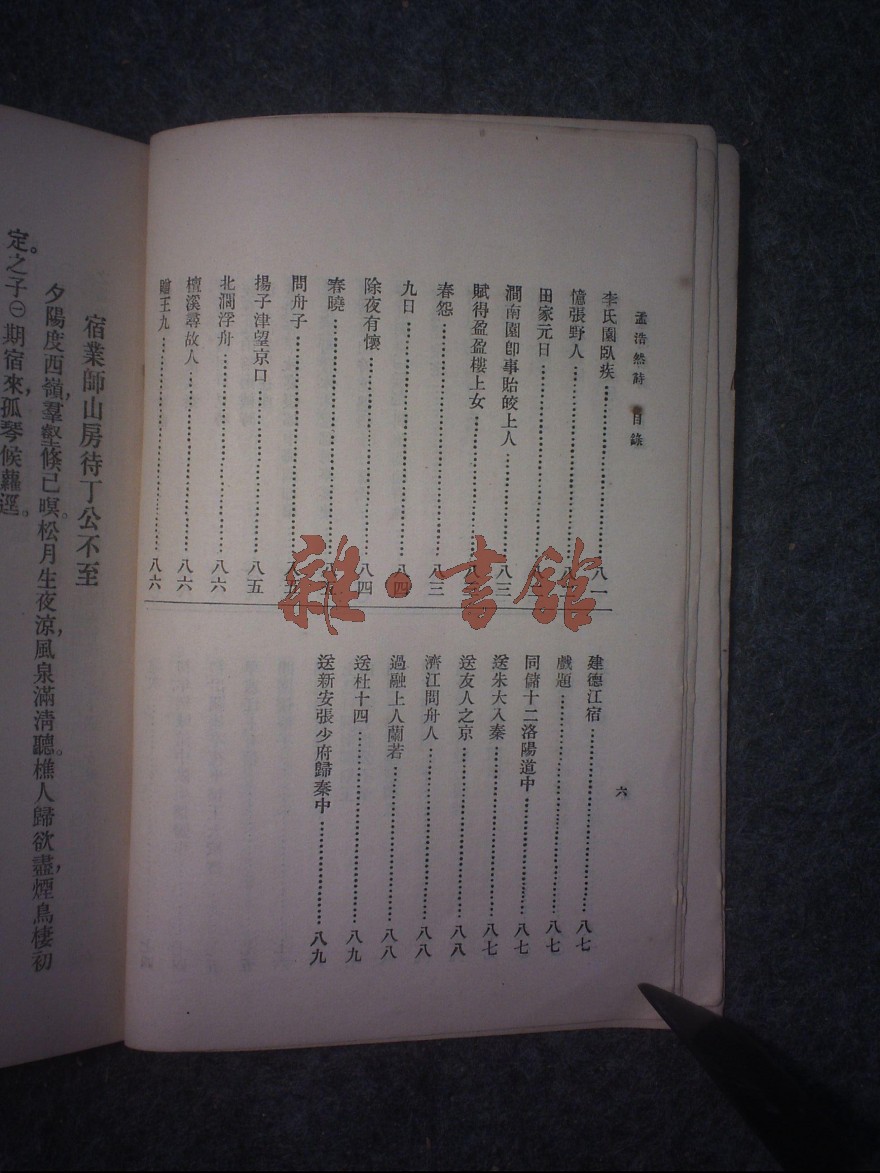 孟浩然詩 目錄
李氏園臥疾……八一
憶張野人……八二
田家元日……八二
澗南園卽事貽皎上人……八三
賦得盈盈樓上女……八三
春怨……八三
九日……八四
除夜有懷……八四
春曉……八五
問舟子……八五
揚子津望京口……八五
北澗浮舟……八六
檀溪尋故人……八六
贈王九……八六
六
建德江宿……八七
戲題……八七
同儲十二洛陽道中……八七
送朱大入秦……八七
送友人之京……八八
濟江問舟人……八八
過融上人蘭若……八八
送杜十四……八九
送新安張少府歸秦中……八九
雜·書館
宿業師山房待丁公不至
夕陽度西嶺，羣壑倏已暝。松月生夜涼，風泉滿清聽。樵人歸欲盡，煙鳥棲初
定。之子㊀期宿來，孤琴候蘿逕。